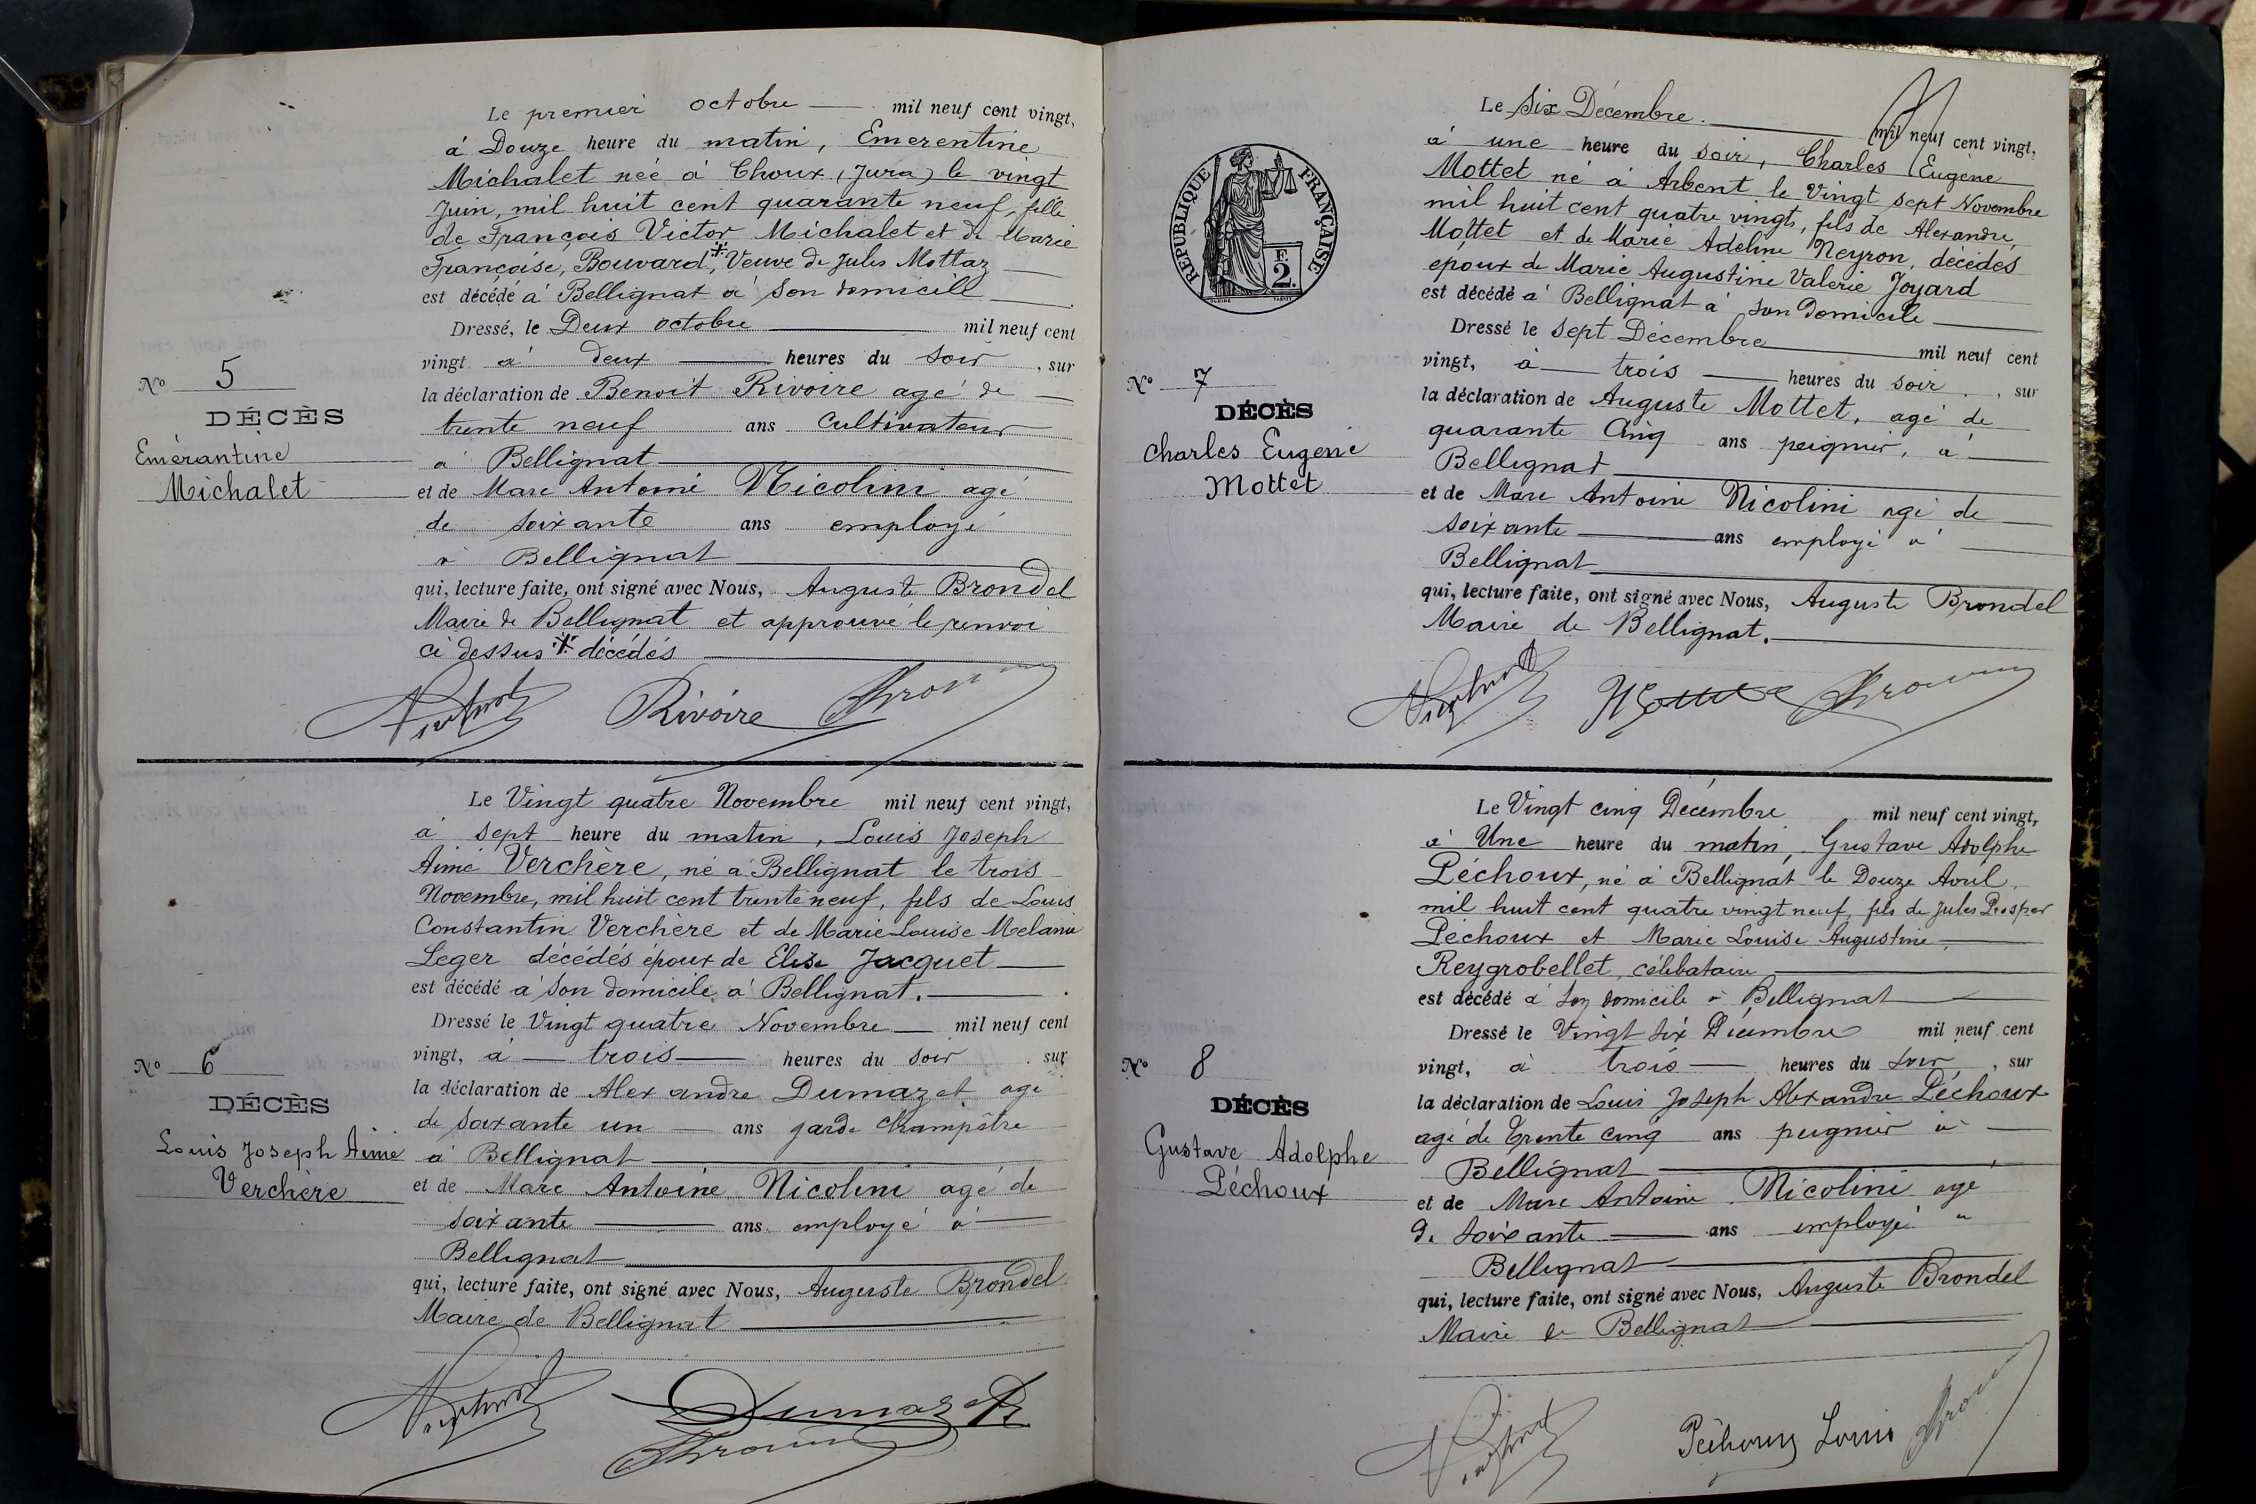 Le premier octobre mil neuf cent vingt,
à Douze heure du matin, Emerentine
Michalet née à Choux (Jura) le vingt
Juin, mil huit cent quarante neuf, fille
de François Victor Michalet et de Marie
Françoise, Bouvard *, Veuve de Jules Mottaz
est décédé à Bellignat à son domicile
Dressé, le Deux octobre mil neuf cent
vingt à deux heures du soir, sur
la déclaration de Benoit Rivoire agé de
trente neuf ans Cultivateur
à Bellignat
et de Marc Antoine Nicolini agé
de soixante ans employé
à Bellignat
qui, lecture faite, ont signé avec Nous, Auguste Brondel
Maire de Bellignat et approuvé le renvoi
ci dessus * décédés
Rivoire
No 5
DÉCÈS
Emérantine
Michalet
Le Vingt quatre Novembre mil neuf cent vingt,
à sept heure du matin, Louis Joseph
Aimé Verchère, né à Bellignat le trois
Novembre, mil huit cent trente neuf, fils de Louis
Constantin Verchère et de Marie Louise Melanie
Leger décédés époux de Elise Jacquet
est décédé à son domicile à Bellignat.
Dressé le Vingt quatre Novembre mil neuf cent
vingt, à trois heures du soir sur
la déclaration de Alexandre Dumazet agé
de soixante un ans garde champêtre
à Bellignat
et de Marc Antoine Nicolini agé de
soixante ans employé à
Bellignat
qui, lecture faite, ont signé avec Nous, Auguste Brondel
Maire de Bellignat
Dumazet
No 6
DÉCÈS
Louis Joseph Aimé
Verchère
Le Six Décembre. mil neuf cent vingt,
à une heure du soir, Charles Eugène
Mottet né à Arbent le Vingt sept Novembre
mil huit cent quatre vingts, fils de Alexandre
Mottet et de Marie Adeline Neyron, décédés
époux de Marie Augustine Valerie Joyard
est décédé à Bellignat à son domicile
Dressé le sept Décembre mil neuf cent
vingt, à trois heures du soir, sur
la déclaration de Auguste Mottet, agé de
quarante Cinq ans peignier, à
Bellignat
et de Marc Antoine Nicolini agé de
soixante ans employé à
Bellignat
qui, lecture faite, ont signé avec Nous, Auguste Brondel
Maire de Bellignat.
RÉPUBLIQUE FRANÇAISE
F.
2.
No 7
DÉCÈS
Charles Eugene
Mottet
Le Vingt cinq Décembre mil neuf cent vingt,
à Une heure du matin, Gustave Adolphe
Péchoux, né à Bellignat le Douze Avril
mil huit cent quatre vingt neuf, fils de Jules Prosper
Péchoux et Marie Louise Augustine
Reygrobellet, célibataire
est décédé à son domicile à Bellignat
Dressé le Vingt six Décembre mil neuf cent
vingt, à trois heures du soir, sur
la déclaration de Louis Joseph Alexandre Péchoux
agé de Trente cinq ans peignier à
Bellignat
et de Marc Antoine Nicolini agé
de soixante ans employé à
Bellignat
qui, lecture faite, ont signé avec Nous, Auguste Brondel
Maire de Bellignat
Péchoux Louis
No 8
DÉCÈS
Gustave Adolphe
Péchoux